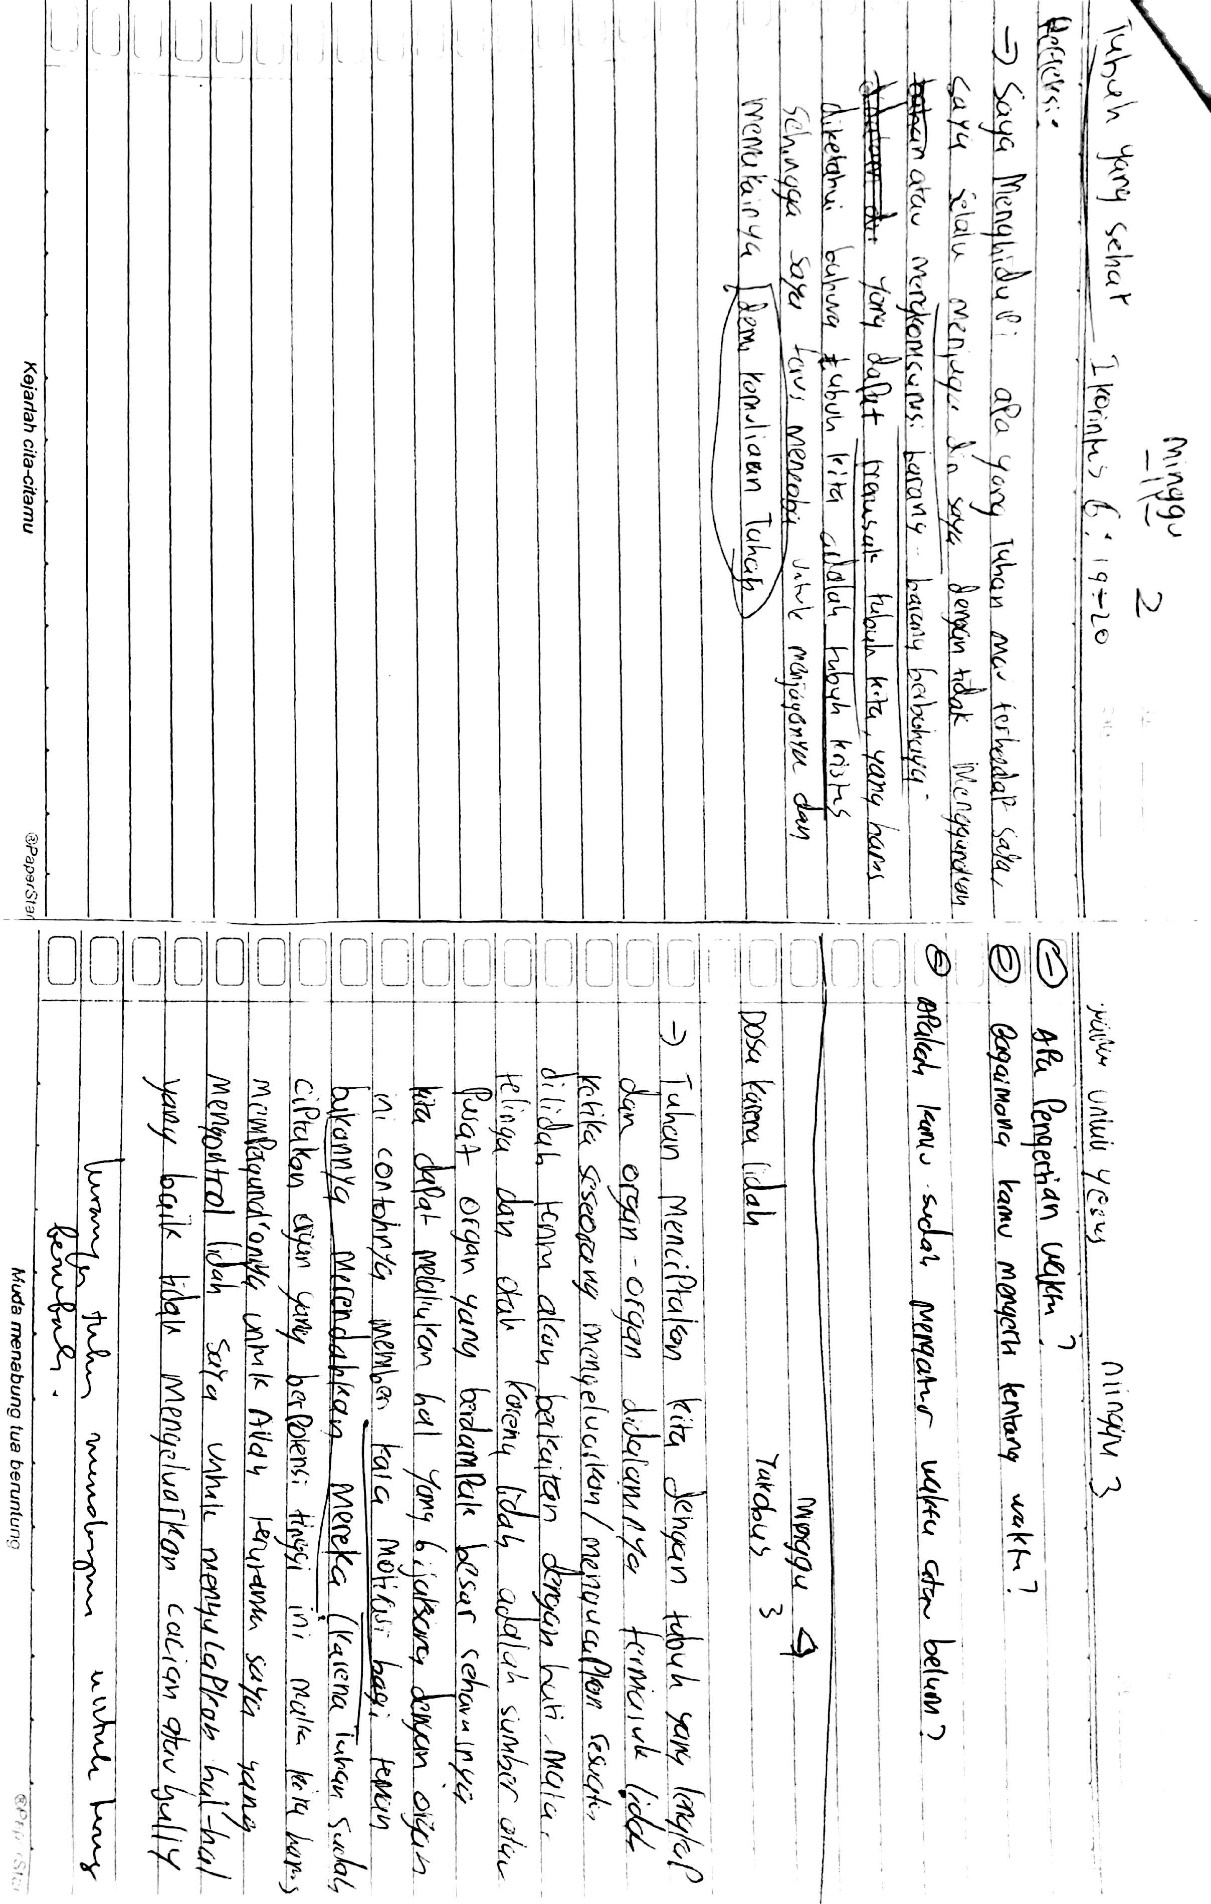 Minggu 2
Tubuh yang sehat I korintus 6:19-20
Refleksi:
→ Saya Menghidupi apa yang Tuhan mau terhadap saya,
saya selalu menjaga diri saya dengan tidak Menggunakan
atau mengkomsumsi barang-barang berbahaya
yang dapat merusak tubuh kita, yang harus
diketahui bahwa tubuh kita adalah tubuh kristus
sehingga saya terus mencoba untuk menjaganya dan
memakainya demi kemuliaan Tuhan
Kejarlah cita-citamu
@PaperStar
untuk yesus Minggu 3
① Apa Pengertian waktu?
② Bagaimana kamu mengerti tentang waktu?
③ Apakah kamu sudah mengatur waktu atau belum?
Minggu 4
Dosa karena lidah Yakobus 3
→ Tuhan menciptakan kita dengan tubuh yang lengkap
dan organ-organ didalamnya termasuk lidah
ketika seseorang mengeluarkan/mengucapkan sesuatu
di lidah akan berkaitan dengan hati, mata,
telinga dan otak karena lidah adalah sumber atau
Pusat organ yang berdampak besar seharusnya
kita dapat melakukan hal yang bijaksana dengan organ
ini contohnya memberi kata motivasi bagi teman
bukannya Merendahkan Mereka (karena Tuhan sudah
ciptakan organ yang berpotensi tinggi ini maka kita harus
untuk Allah terutama saya yang
mengontrol lidah saya untuk mengucapkan hal-hal
yang baik tidak mengeluarkan cacian atau bully
tuhan untuk terus
berubah.
Muda menabung tua beruntung
@PaperStar